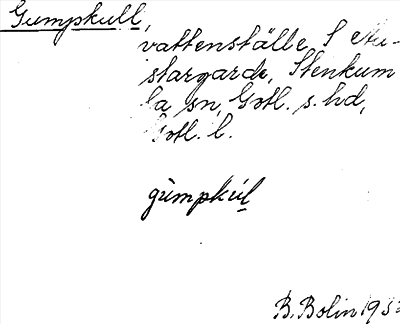 Gumpkull,
vattenställe S Au-
stargarde, Stenkum
la sn, Gotl. s. hd,
Gotl. l.
gùmpkúl
B. Bolin 195